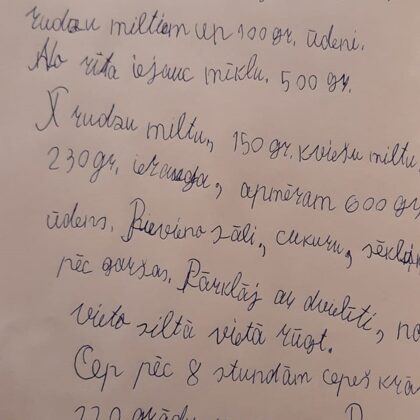 rudzu miltiem un 100 gr. ūdeni.
No rīta iejauc mīklu. 500 gr.
X rudzu miltu, 150 gr. kviešu miltu,
230 gr. ierauga, apmēram 600 gr.
ūdens. Pievieno sāli, cukuru, sēklas
pēc garšas. Pārklāj ar dvielīti, no
vieto siltā vietā rūgt.
Cep pēc 8 stundām cepeškrā
220 grādu